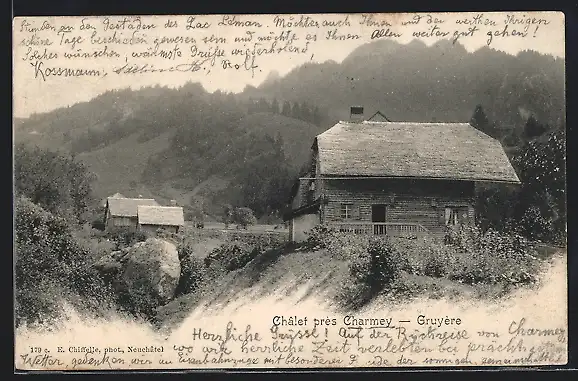 Stunden an den Gestaden des Lac Leman. Möchten auch Ihnen und der werthen Ihrigen
schöne Tage beschieden gewesen sein und möchte es Ihnen Allen weiter gut gehen!
Solches wünschen, wärmste Grüße wiederholend,
Kossmann, Rolf
Châlet près Charmey — Gruyère
179 c. E. Chiffelle, phot., Neuchâtel
Herzliche Grüsse! Auf der Rückreise von Charmey,
wo wir herrliche Zeit verlebten bei prächtigem
Wetter, gedenken wir im Eisenbahnzug mit besonderer Freude der sonnigen gemeinschaftl.